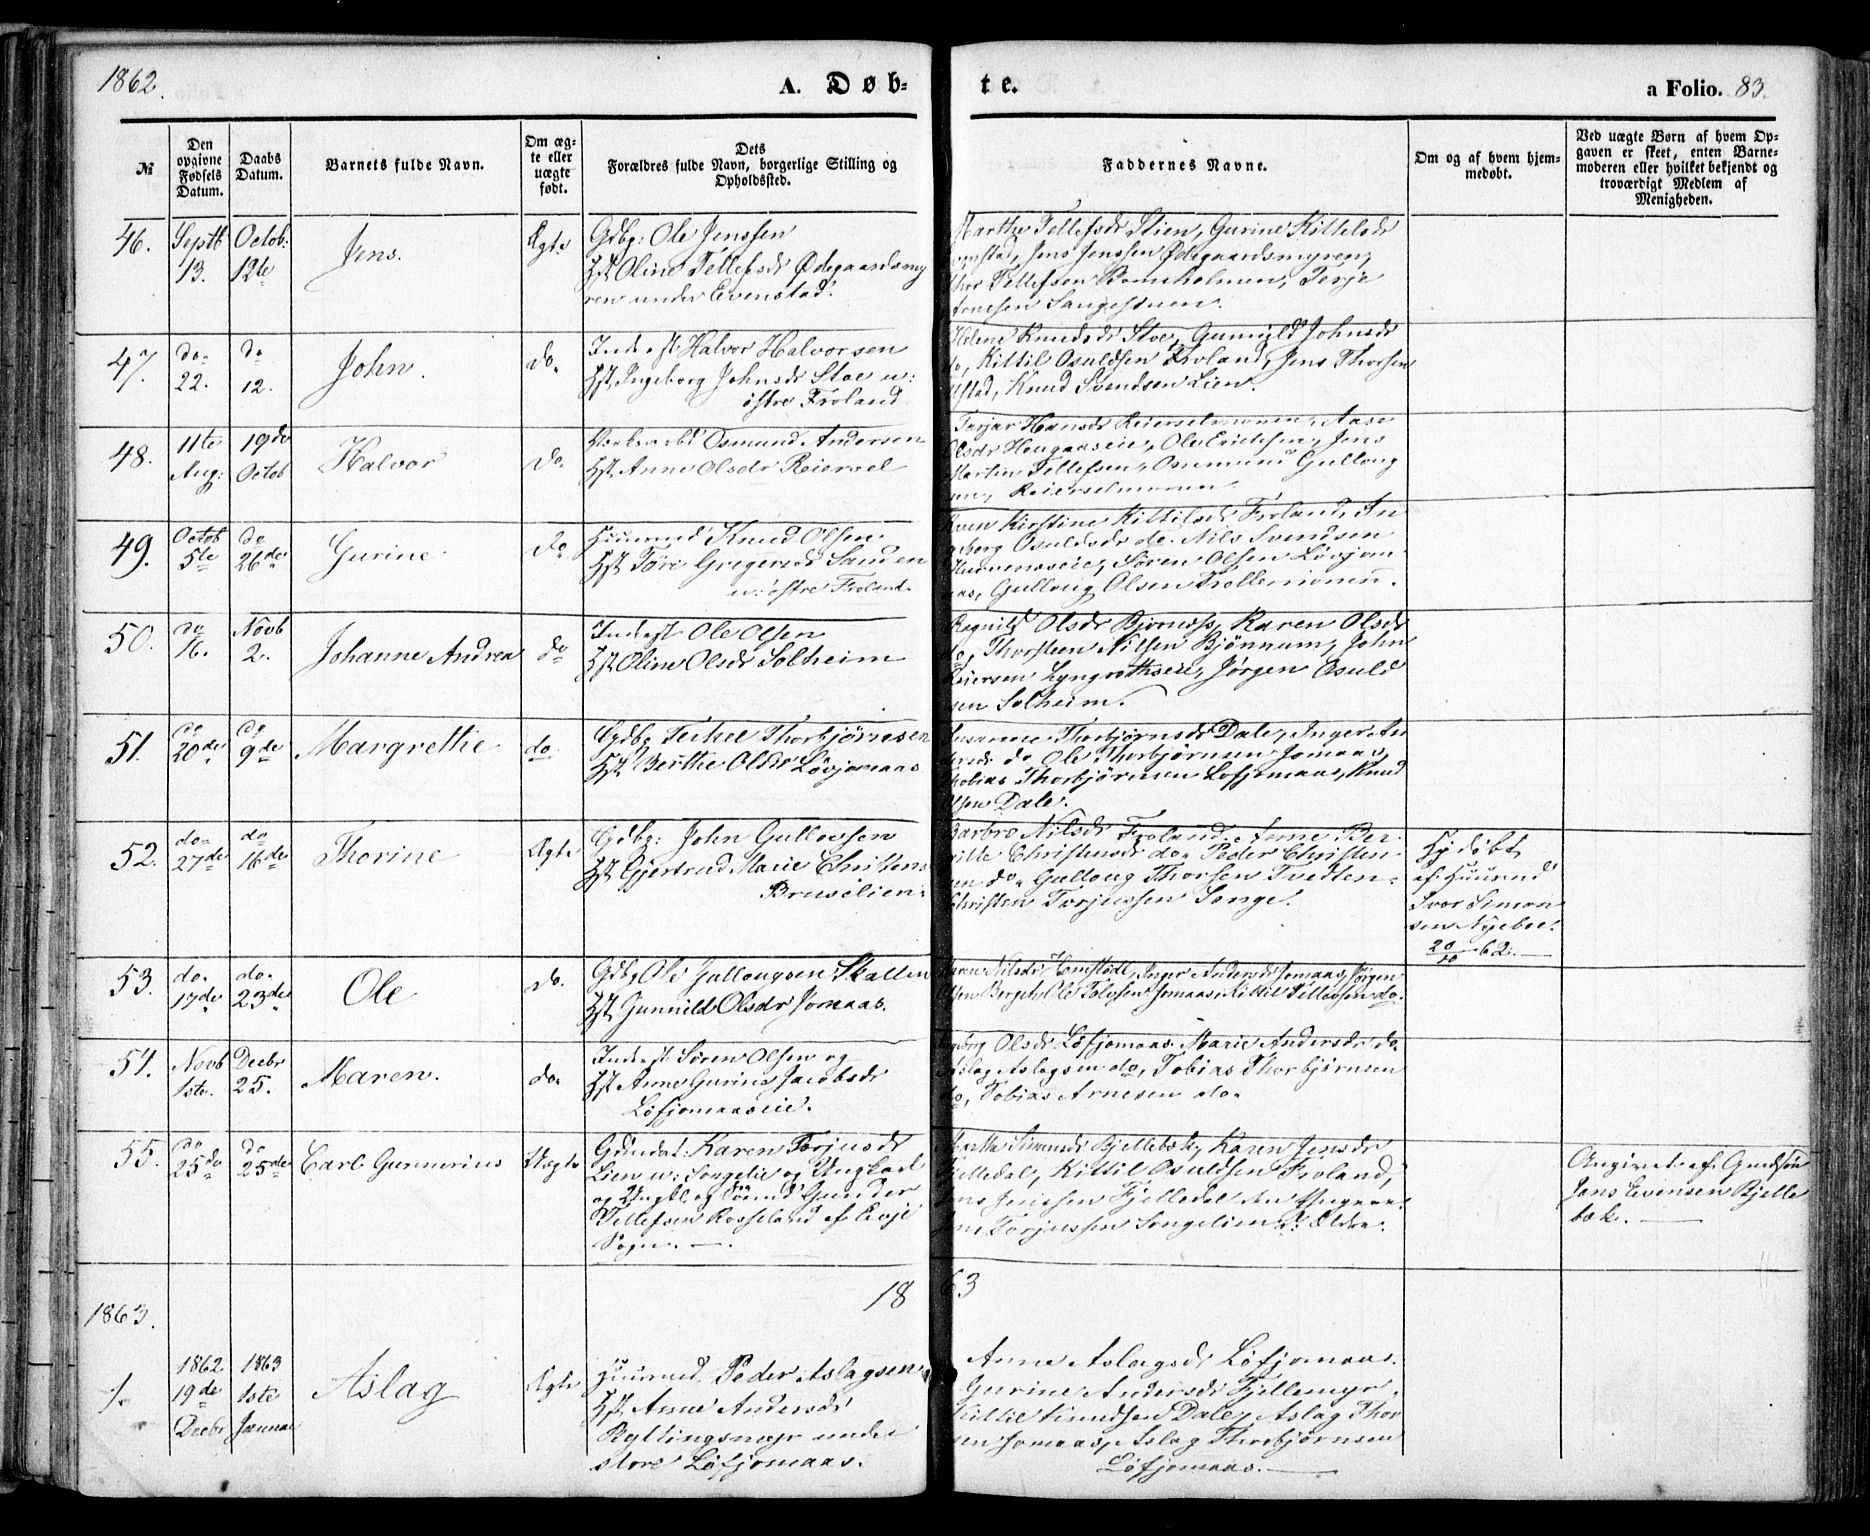 1862.
A. Døb=
te.
a Folio. 83.
№
Den
opgivne
Fødsels
Datum.
Daabs
Datum.
Barnets fulde Navn.
Om æg-
te eller
uægte
født.
Dets
Forældres fulde Navn, borgerlige Stilling og
Opholdssted.
Faddernes Navne.
Om og af hvem hjem-
medøbt.
Ved uægte Børn af hvem Op-
gaven er skeet, enten Barne-
moderen eller hvilket bekjendt og
troværdigt Medlem af
Menigheden.
46.
Septb
13.
Octob:
12te
Jens.
Ægte
Gdbg: Ole Jenssen
Hst Oline Tellefsdr Ødegaardsmy
ren under Evenstad.
Marthe Tellefsdr Stien, Gurine Kittelsdr
Jens Jenssen Ødegaardsmyren,
Thor Tellefsen Bomholmen, Terje
47.
do.
22.
do
12.
John.
do.
Inderst Halvor Halvorsen
Hst Ingeborg Johnsdr Stoe u:
østre Froland
Helene Knudsdr Stoe, Gunvild Johnsdr
do, Kittil Osuldsen Froland, Jens Thorsen
Knud Svendsen Lien.
48.
11te
Aug:
19de
Octob
Halvor
do.
Osmund Andersen
Hst Anne Olsdr Reiersel
Tarjer Hansdr Reierselmonen, Aase
Olsdr Ole Erichsen, Jens
Martin Tellefsen, Osmund Gulloug
sen, Reierselmonen
49.
Octob
5te
do
26de
Gurine
do
Huusmd Knud Olsen
Hst Tøre Gregersdr Sanden
u: østre Froland.
Karen Kirstine Kittilsdr Froland, In
geborg Osuldsdr do. Nils Svendsen
Søren Olsen Løvjom
aas, Gulloug Olsen Trollemonen.
50.
do
16.
Novb
2.
Johanne Andrea
do
Inderst Ole Olsen
Hst Oline Olsdr Solheim
Ragnild Olsdr Karen Olsdr
do, Thorsteen Nilsen Bjønnum, John
Reiersen Lyngrothseie, Jørgen Osuld
sen Solheim.
51.
do
20de
do
9de
Margrethe
do
Gdbg Thorbjørnsen
Hst Berthe Olsdr Løvjomaas
Susanne Thorbjørnsdr Dale, Inger An
dersdr do Ole Thorbjørnsen Jomaas,
Tobias Thorbjørnsen Løfjomaas, Knud
Olsen Dale.
52.
do.
27de
do
16de
Thorine
Ægte
Gdbg: John Gullovsen
Hst Gjertrud Marie Christens
Bruselien.
Barbro Nilsdr Froland. Anne Ber-
gitte Christensdr do. Peder Christen
sen do. Gulloug Thorsen Tvedten.
Christen Torjussen Songe.
Hj. døbt
af Huusmd
Ivar Simon
sen Nyeboe.
20/10 62.
53.
do.
17de
do.
23de
Ole
do.
Gdbg Ole Gullougsen Skallen
Hst Gunnild Olsdr Jomaas.
Maren Nilsdr Inger Andersdr Jomaas, Jørgen
Olsen Berget, Ole Jomaas, Kittil Tellevsen do.
54.
Novb
1ste.
Decbr
25.
Maren.
do.
Inderst Søren Olsen og
Hst Anne Gurine Jacobsdr
Løfjomaaseie.
Ingeborg Olsdr Løfjomaas. Marie Andersdr do.
Aslag Aslagsen do, Tobias Thorbjørnsen
do, Tobias Arnesen do.
55.
do
25de
do
25de
Carl Gunnerius
Uægte
Karen Torjusdr
Lien u: Songelie og Ungkarl
Gunder
Tellefsen Rosseland af Evje
Sogn.
Marthe Simonsdr Bjellebæk, Karen Jensdr
Fjelledal, Kittil Osuldsen Froland,
Jens Jensen Fjelledal den Yngre
Torjussen Songelien d: Ældre.
Angivet af Gmdssøn
Jens Evensen Bjelle
bæk.
1863
1863.
1.
1862
19de
Decbr
1863
1ste
Januar
Aslag
Ægte
Huusmd Peder Aslagsen
Hst Anne Andersdr
Ryttingsmyr under
store Løfjomaas.
Anne Aslagsdr Løfjomaas.
Gurine Andersdr Fjellemyr.
Kittil Knudsen Dale, Aslag Thor
sen Jomaas, Aslag Thorbjørnsen
Løfjomaas.